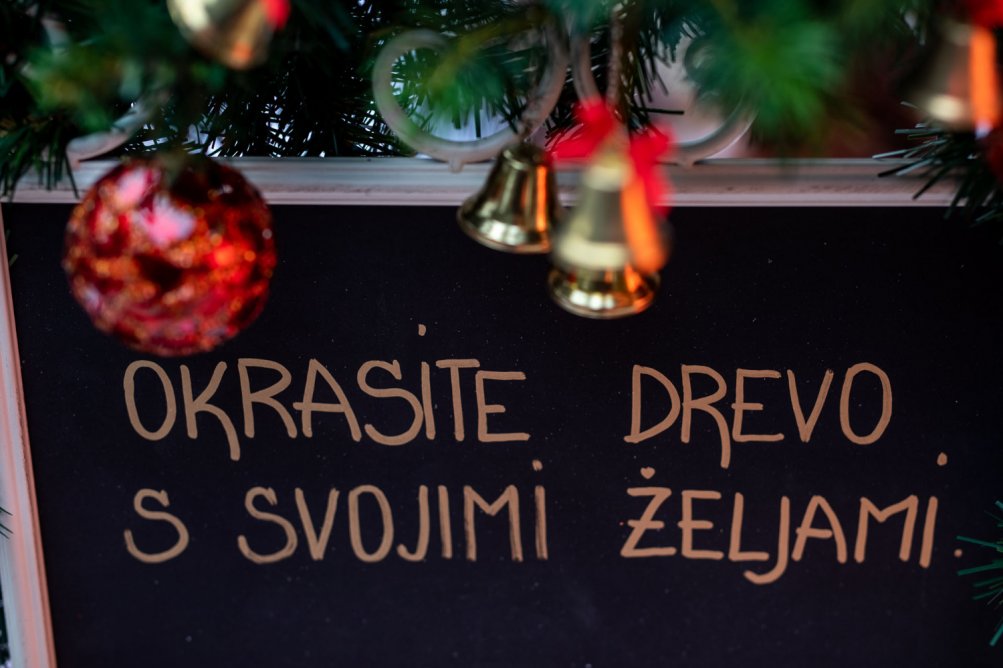 OKRASITE DREVO
S SVOJIMI ŽELJAMI.